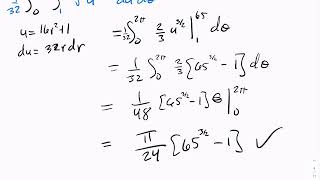 1/32 ∫₀ ∫₁ √u du dθ
u = 16r²+1
du = 32rdr
= 1/32 ∫₀^2π 2/3 u^3/2 |₁^65 dθ
= 1/32 ∫₀^2π 2/3 [65^3/2 - 1] dθ
= 1/48 [65^3/2 - 1] θ |₀^2π
= π/24 [65^3/2 - 1] ✓